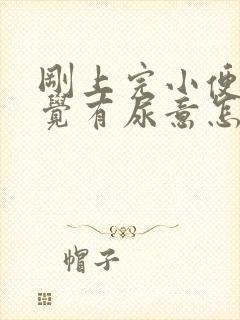 剛上完小便
覺有尿意怎
帽子